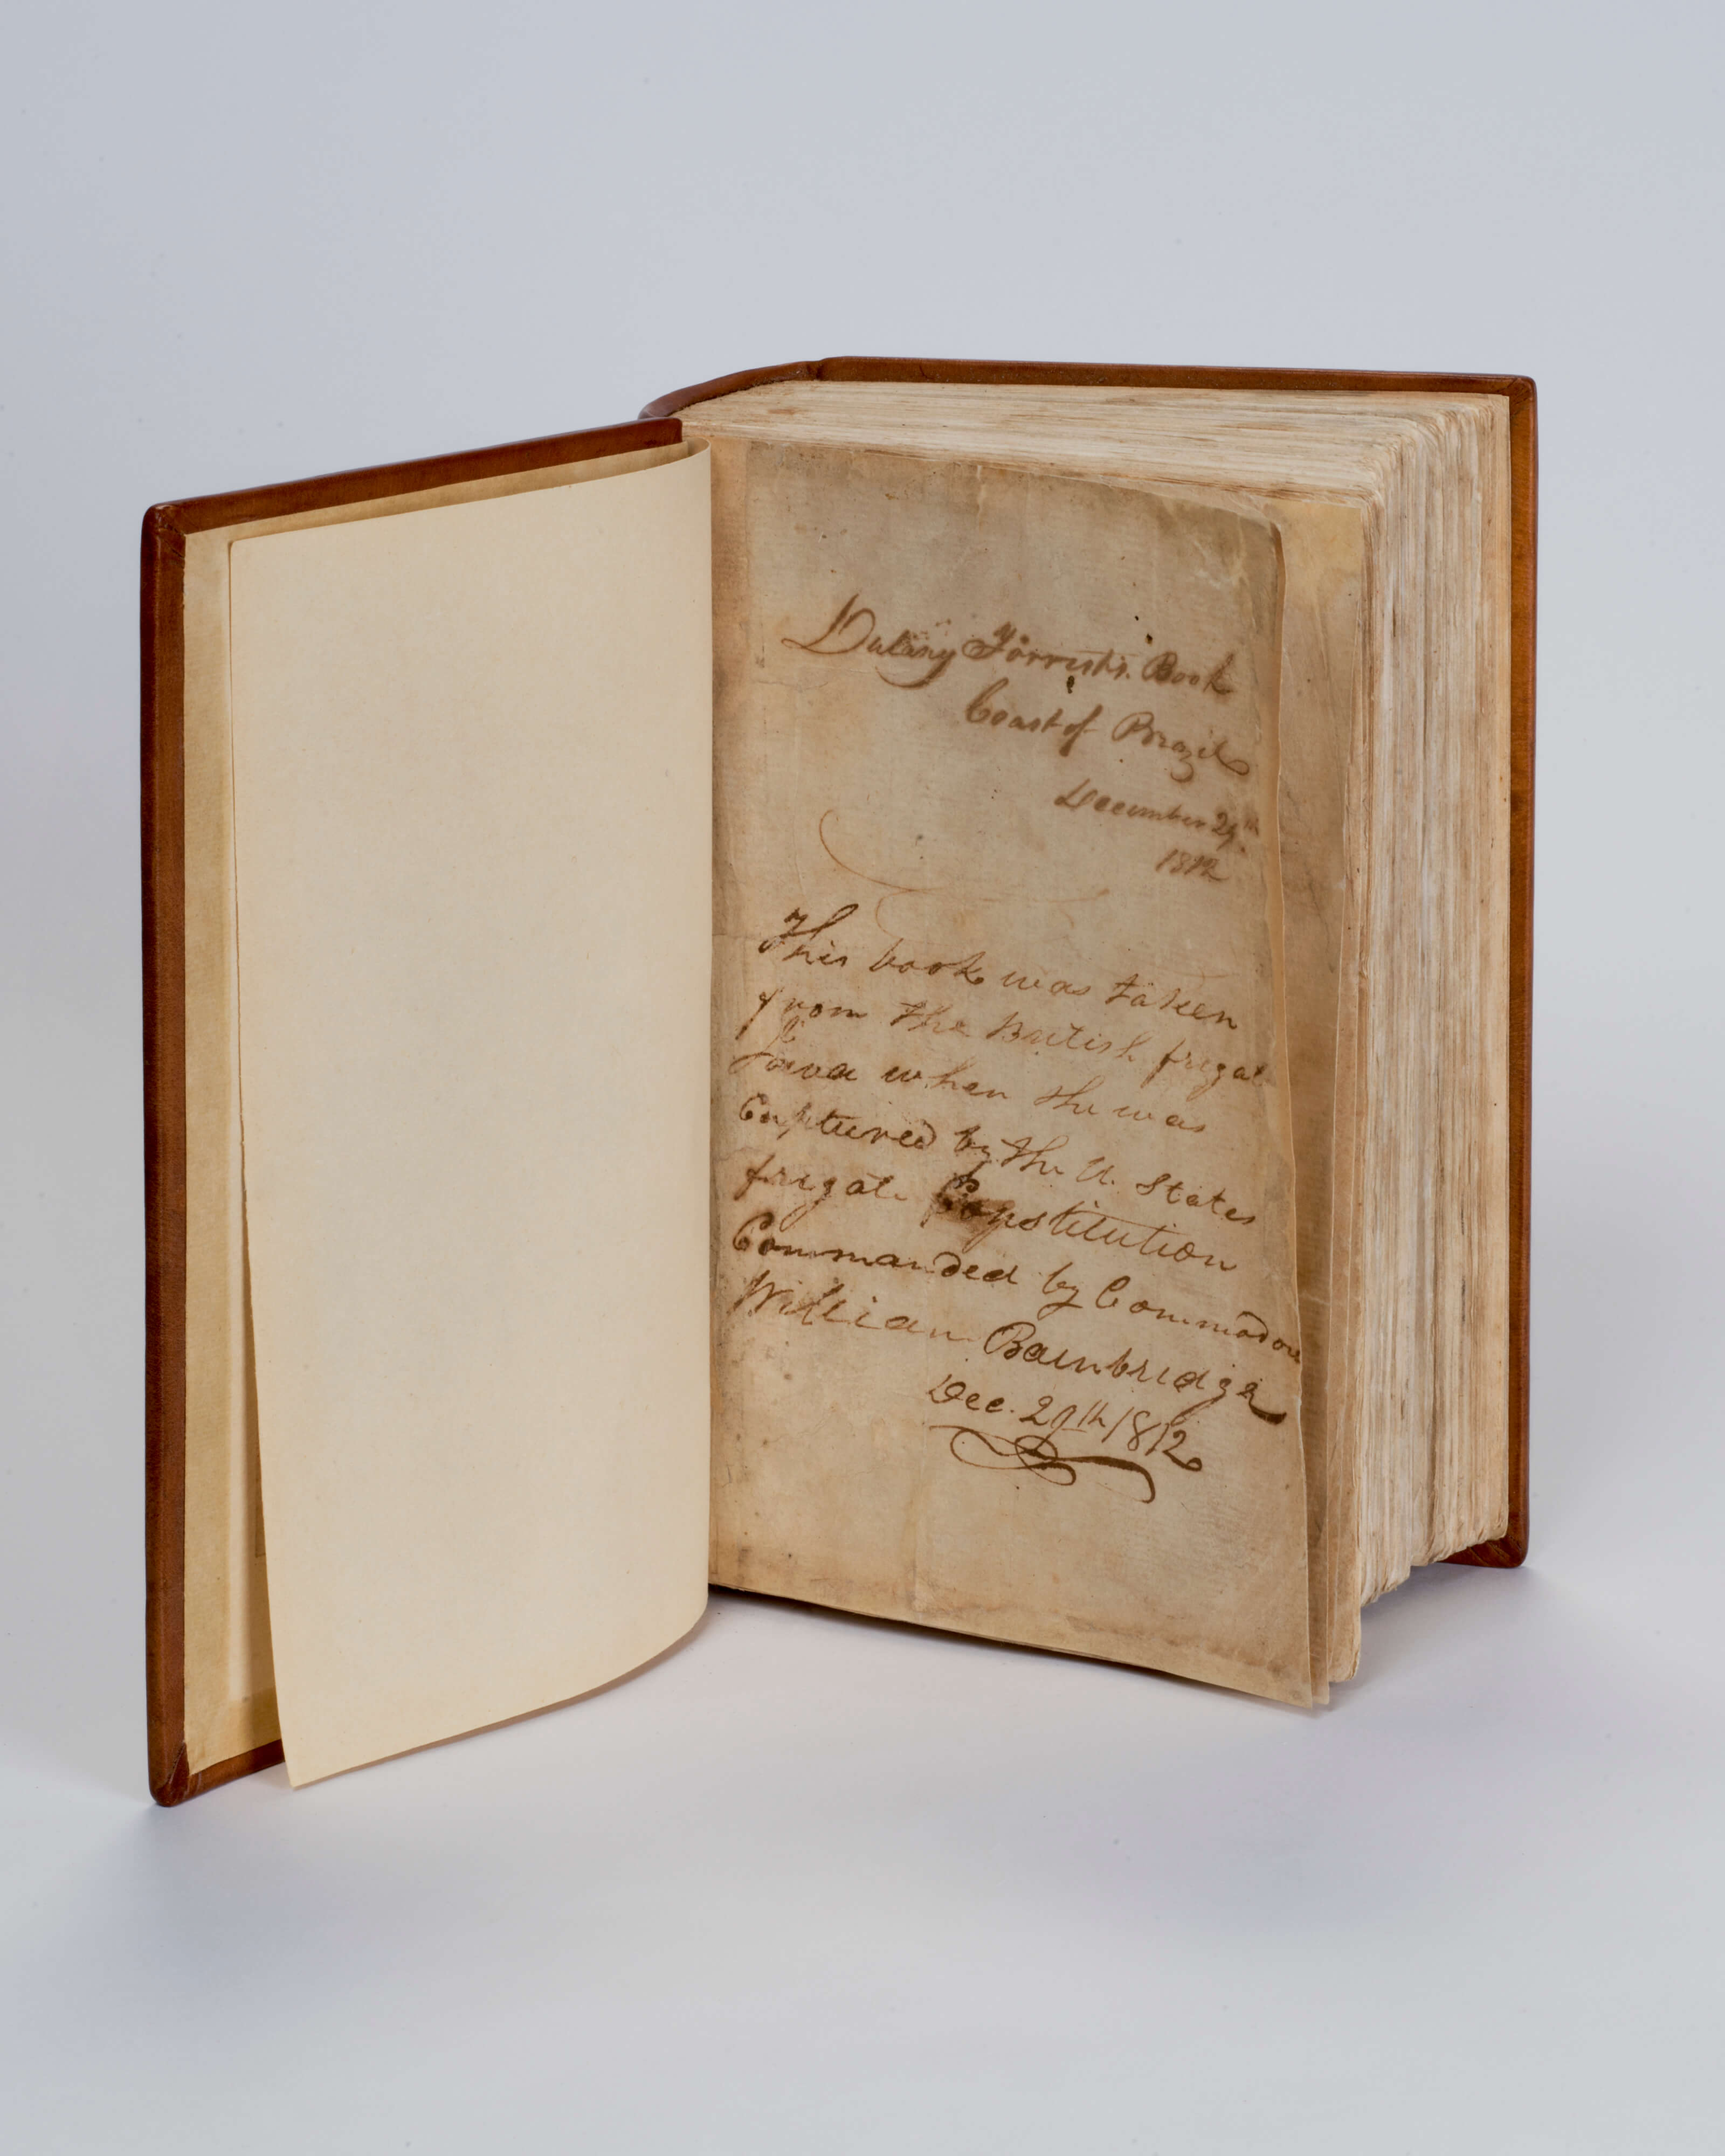 Dulany Forrest's Book
Coast of Brazil
December 29th
1812
This book was taken
from the British frigate
Java when she was
Captured by the U. States
frigate Constitution
Commanded by Commodore
William Bainbridge
Dec. 29th 1812